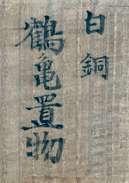 白銅
鶴亀置物